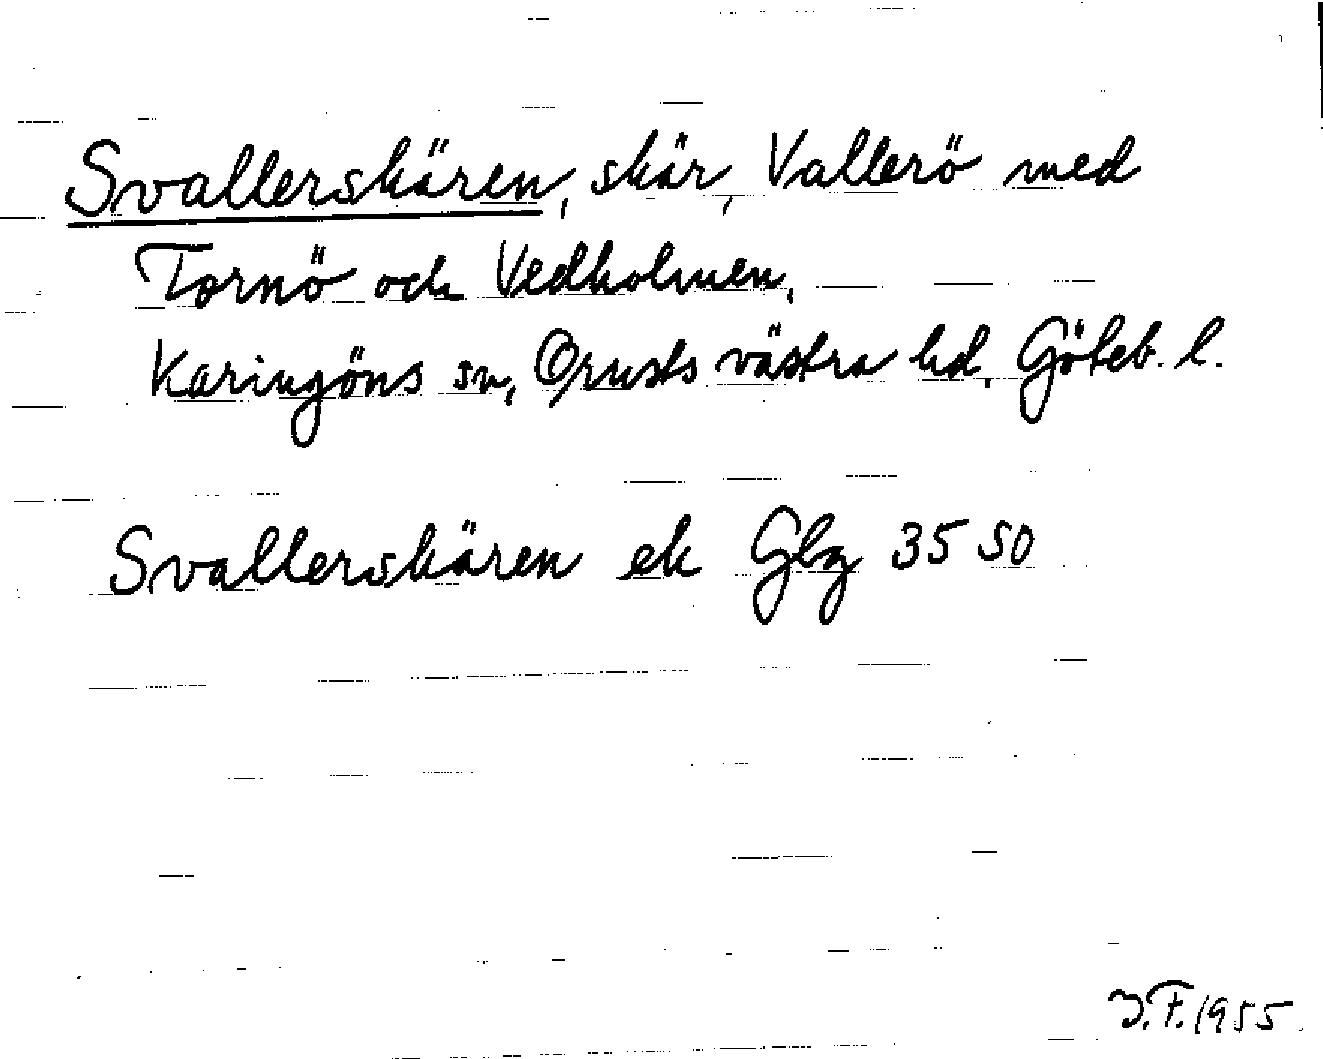 Svallerskären, skär, Vallerö med
Tornö och Vedholmen,
Karingöns sn, Orusts västra hd, Göteb. l.
Svallerskären ek Gbg 35 SO
J.F. 1955